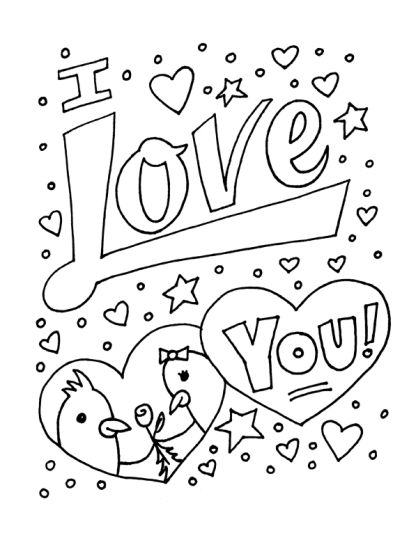 I
Love
You!